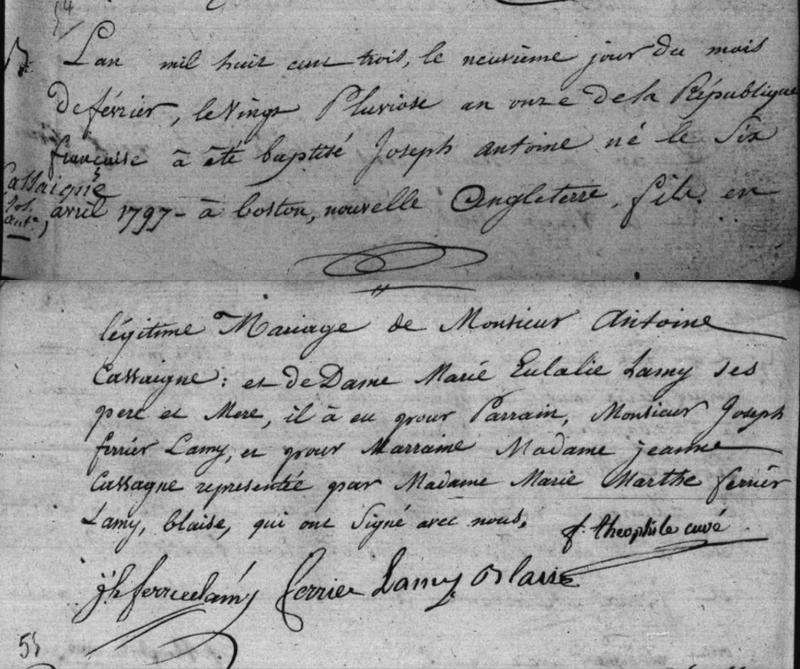 54
L'an mil huit cent trois, le neuvième jour du mois
De février, le Vingt Pluviose an onze De la République
française à été baptisé Joseph antoine né le Six
Cassaigne
Jos.
ant.e
avril 1797 - à boston, nouvelle Angleterre, fils en
légitime Mariage de Monsieur Antoine
Cassaigne: et de Dame Marie Eulalie Lamy ses
pere et Mere, il à eu pour Parrain, Monsieur Joseph
ferrier Lamy, et pour Marraine Madame jeanne
Cassagne representée par Madame Marie Marthe ferrier
Lamy, blaise, qui ont Signé avec nous,
f. theophile curé
jh ferrier lamy ferrier Lamy Blaise
55